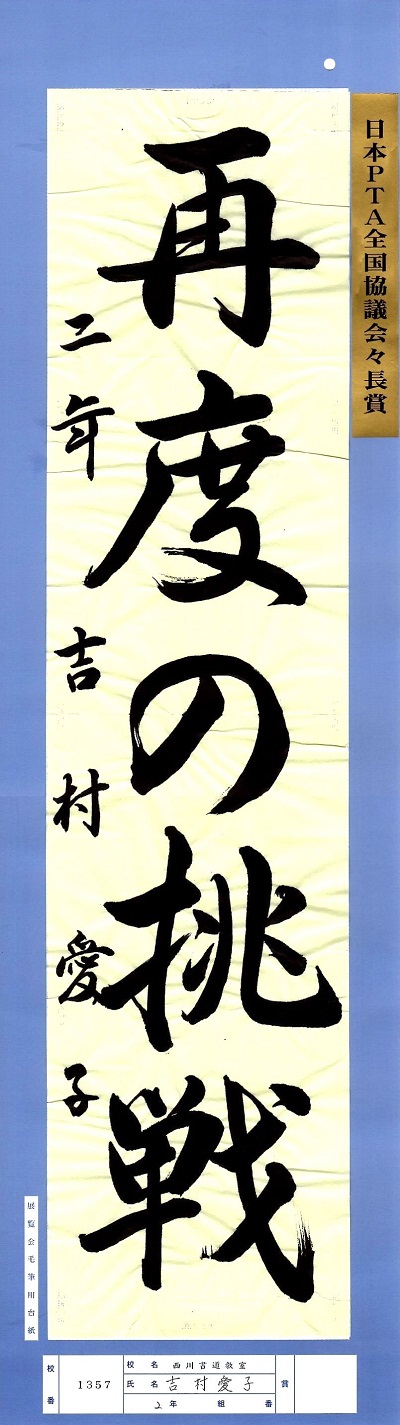 日本PTA全国協議会々長賞
再度の挑戦
二年 吉村愛子
展覧会毛筆用台紙
校番 1357
校名 西川書道教室
氏名 吉村愛子
2年 組 番
賞